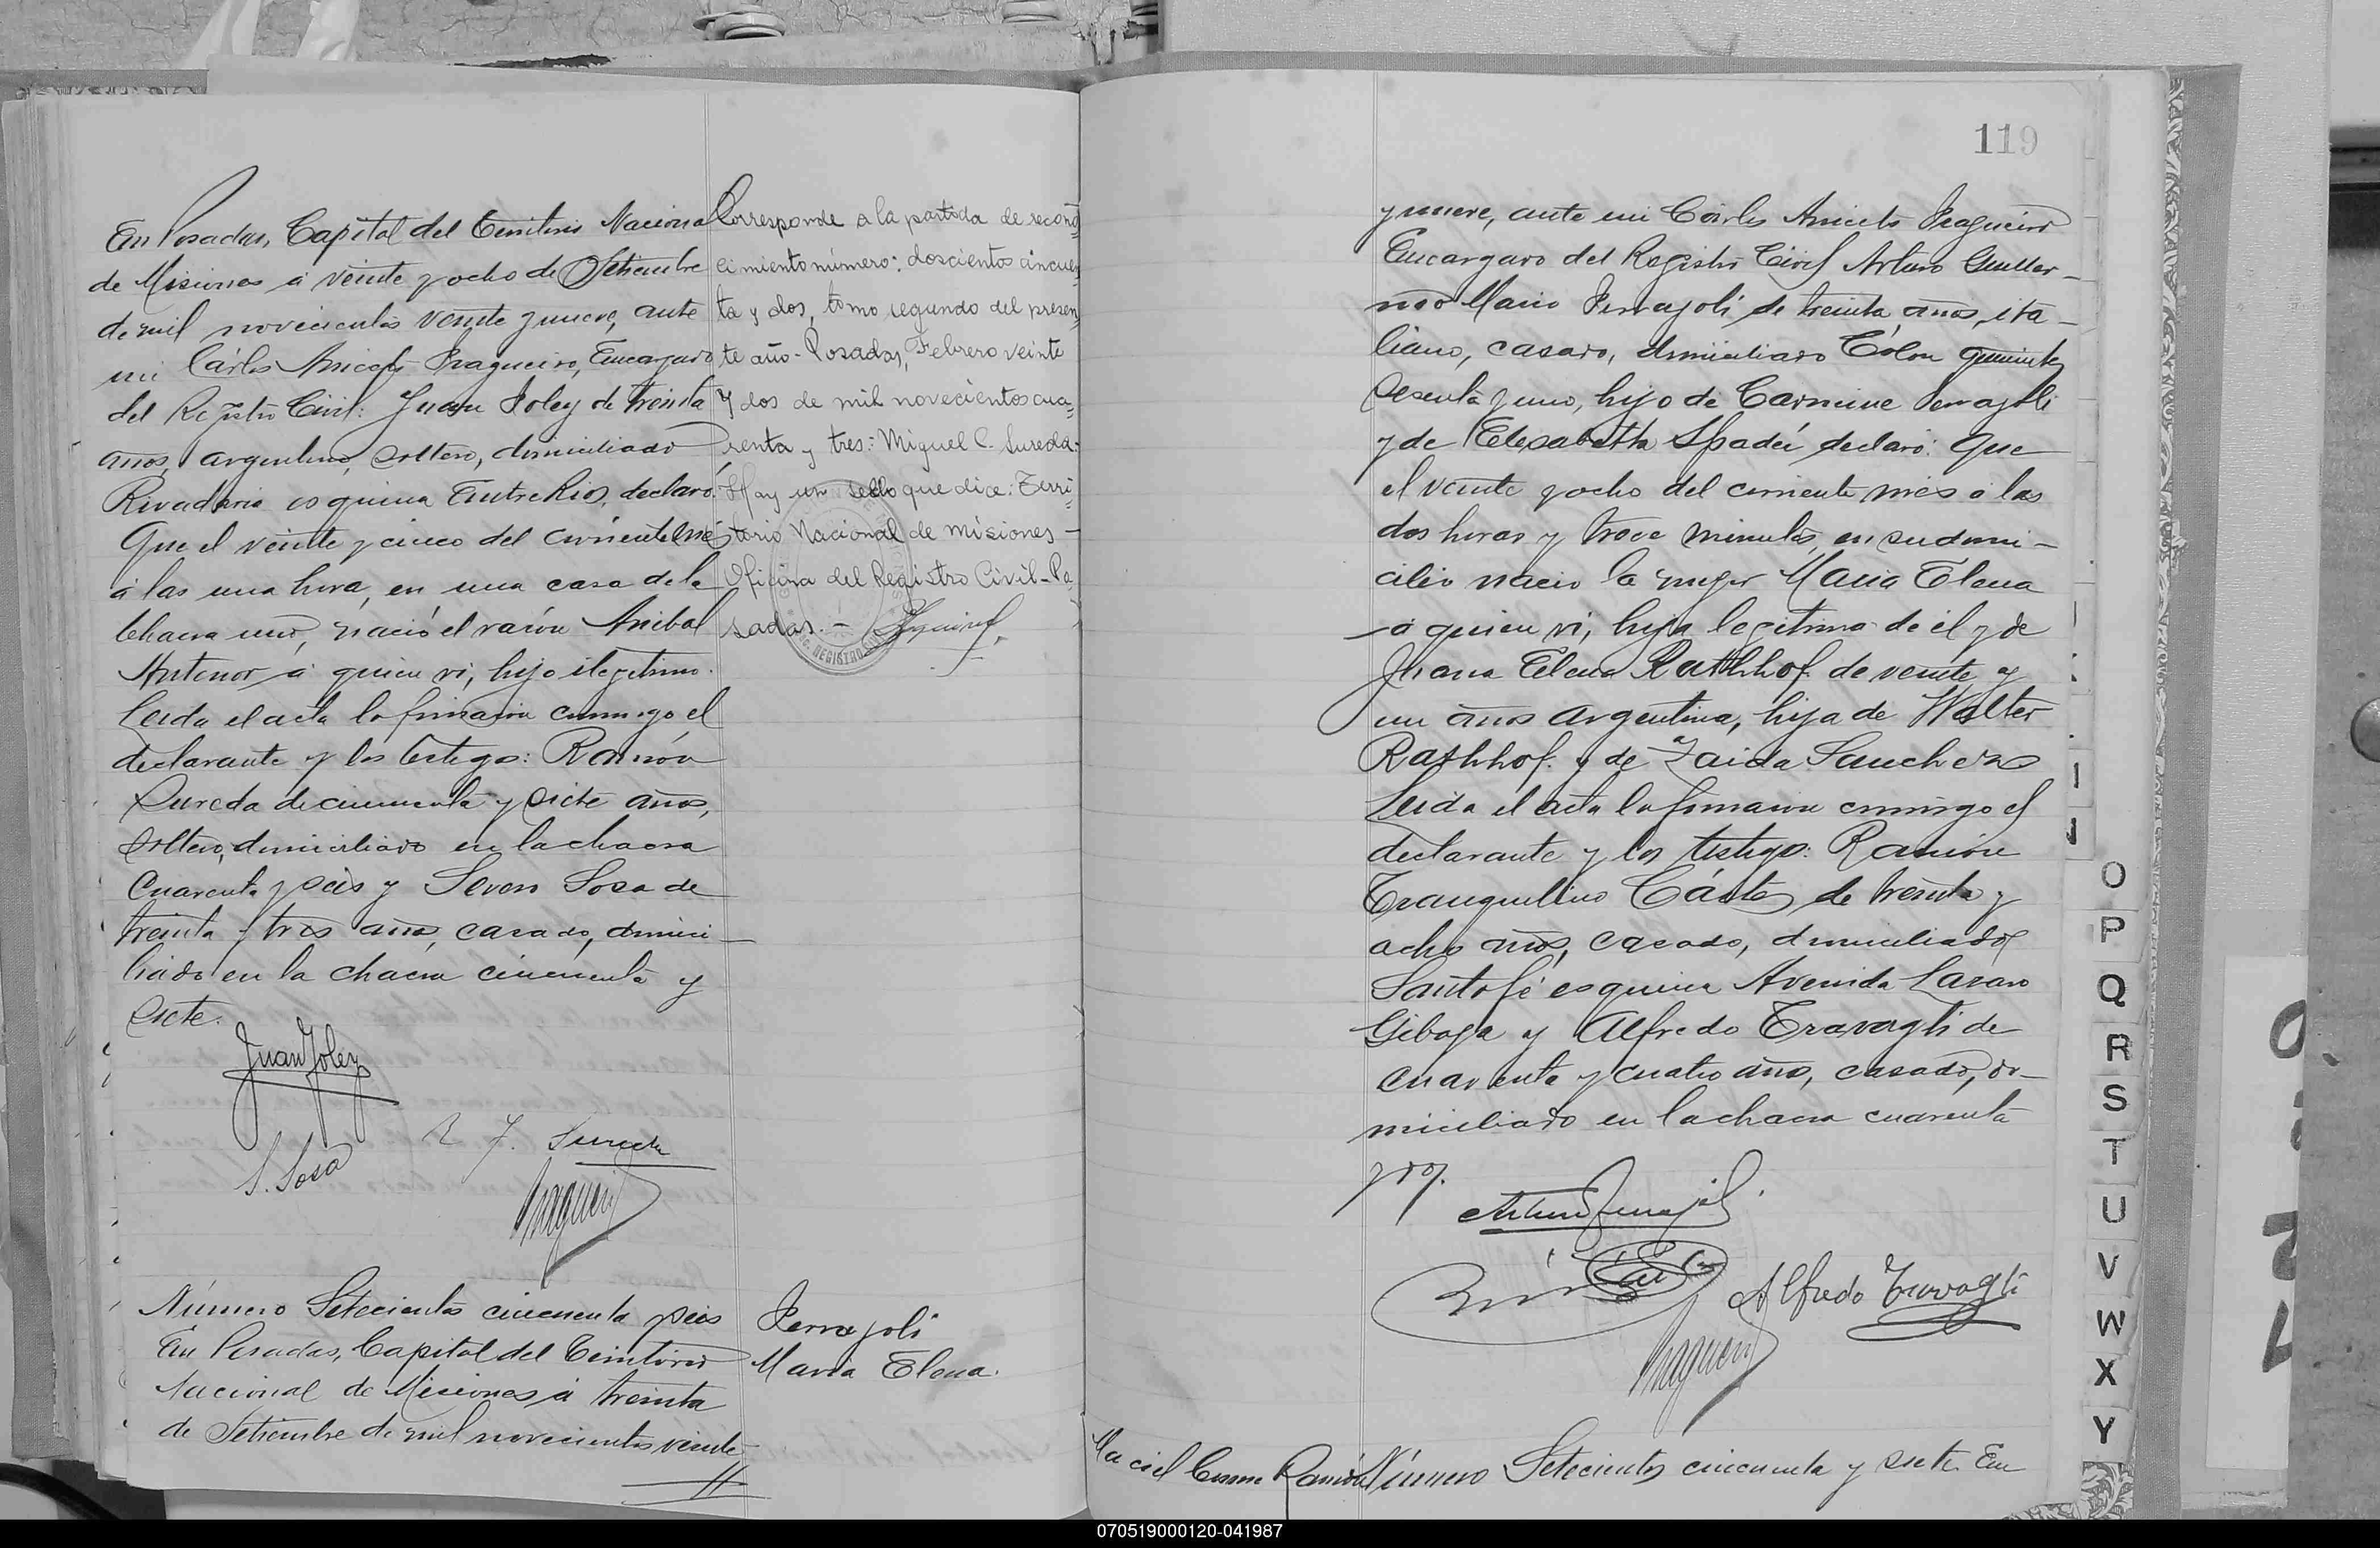 En Posadas, Capital del Territorio Nacional
de Misiones á veinte y ocho de Setiembre
de mil novecientos veinte y nueve, ante
mi Cárlos Aniceto Fragueiro, Encargado
del Registro Civil: Juan Foley de treinta
años, argentino, soltero, domiciliado
Rivadavia esquina Entre Rios, declaró:
Que el veinte y cinco del corriente mes
á las una hora, en una casa de la
chacra uno, nació el varón Anibal
Antenor á quien vi, hijo ilegitimo.
Leida el acta la firmaron conmigo el
declarante y los testigos: Ramón
Sureda de cincuenta y siete años,
soltero, domiciliado en la chacra
cuarenta y seis y Severo Sosa de
treinta y tres años, casado, domici-
liado en la chacra cincuenta y
siete.
Juan Foley
R F. Sureda
S. Sosa
Fragueiro
Corresponde a la partida de recono
cimiento número: doscientos cincuen
ta y dos, tomo segundo del presen
te año - Posadas, Febrero veinte
y dos de mil novecientos cua-
renta y tres: Miguel C. Sureda.
Hay un sello que dice: Terri
torio Nacional de Misiones -
Oficina del Registro Civil - Po
sadas. -
REGISTRO
Número Setecientos cincuenta y seis
En Posadas, Capital del Territorio
Nacional de Misiones á treinta
de Setiembre de mil novecientos veinte
Ferrajoli
Maria Elena.
119
y nueve, ante mi Cárlos Aniceto Fragueiro
Encargado del Registro Civil Arturo Guiller-
mo Mario Ferrajoli de treinta años, ita-
liano, casado, domiciliado Colon quinientos
sesenta y uno, hijo de Carmine Ferrajoli
y de Elisabetta Spadei declaró: Que
el veinte y ocho del corriente mes á las
dos horas y trece minutos, en su domi-
cilio nació la mujer Maria Elena
á quien vi, hija legitima de él y de
Juana Elena Rathhof de veinte y
un años argentina, hija de Walter
Rathhof y de Zaida Sanchez
Leida el acta la firmaron conmigo el
declarante y los testigos: Ramón
Tranquilino de treinta y
ocho años, casado, domiciliado
Santa Fé esquina Avenida Lavaro
Giboja y Alfredo Travagli de
cuarenta y cuatro años, casado, do-
miciliado en la chacra cuarenta
y dos.
Arturo Ferrajoli
Alfredo Travagli
Fragueiro
Maciel Cosme Ramón
Número Setecientos cincuenta y siete En
O
P
Q
R
S
T
U
V
W
X
Y
070519000120-041987